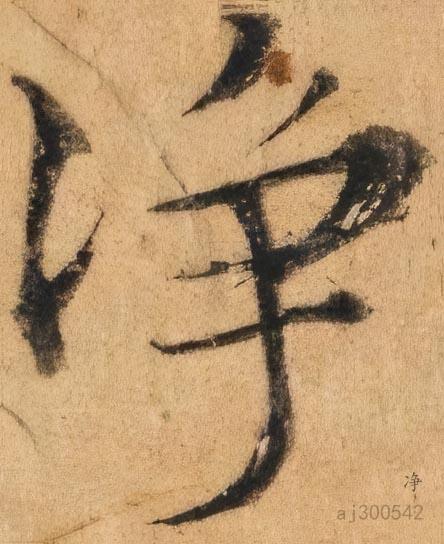 净
净
aj300542